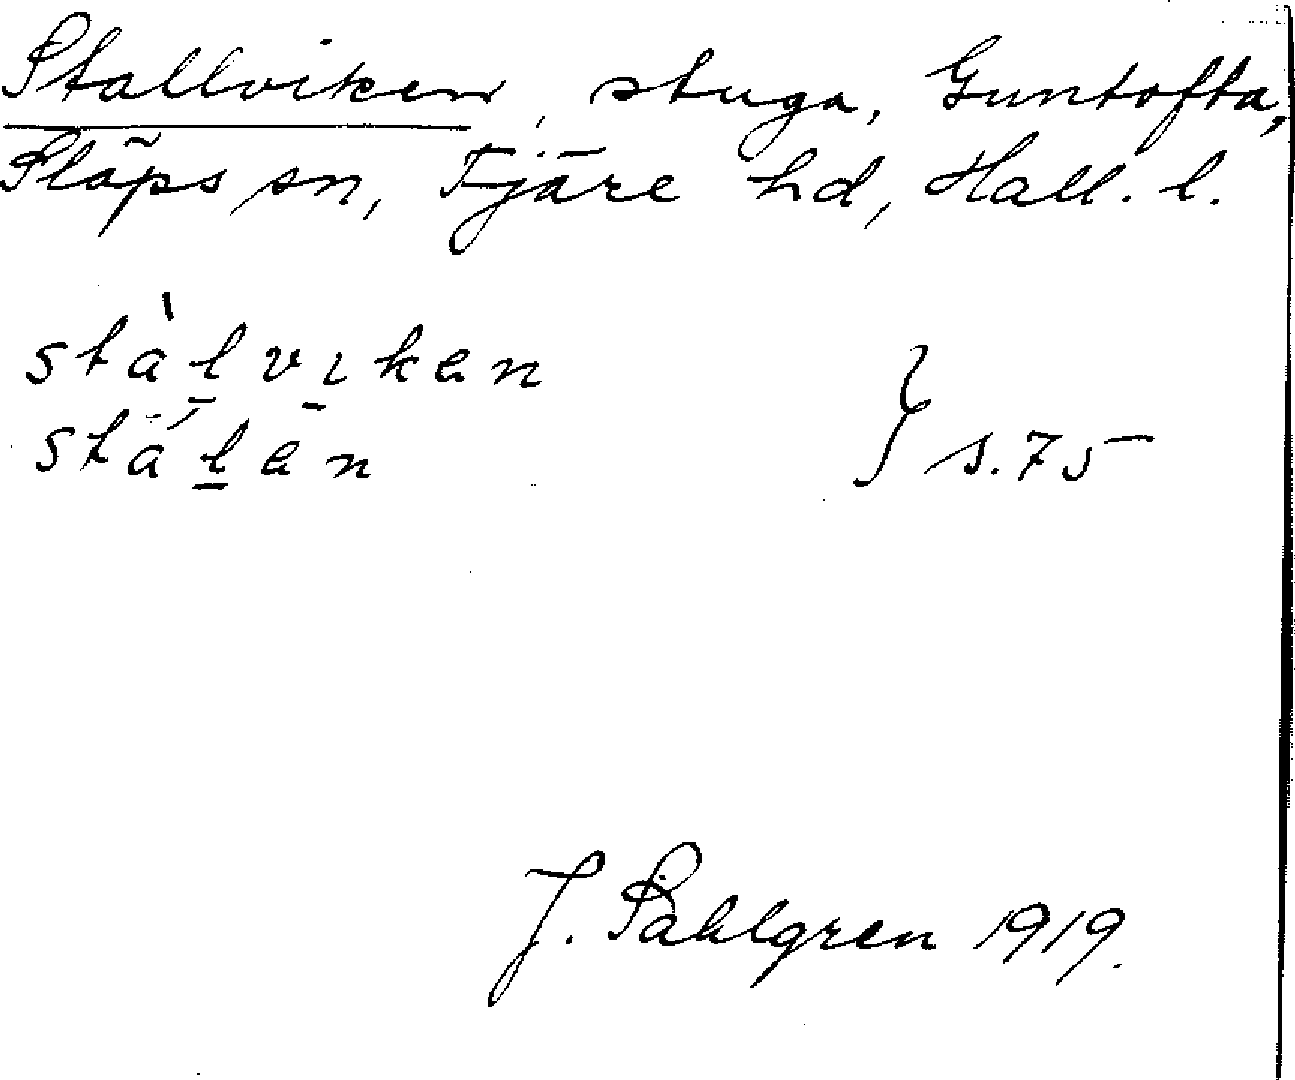 Stallviken, stuga, Guntofta,
Släps sn, Fjäre hd, Hall. l.
stàl̠vı̠ken
stál̠en } s. 75
J. Sahlgren 1919.